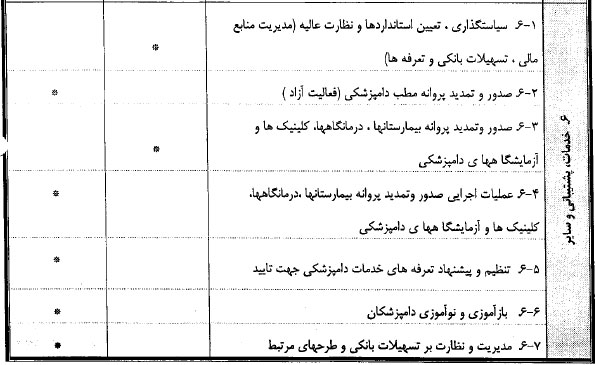 ۶. خدمات، پشتیبانی و سایر
۶-۱. سیاستگذاری ، تعیین استانداردها و نظارت عالیه (مدیریت منابع
مالی ، تسهیلات بانکی و تعرفه ها)
*
۶-۲. صدور و تمدید پروانه مطب دامپزشکی (فعالیت آزاد )
*
۶-۳. صدور وتمدید پروانه بیمارستانها ، درمانگاهها، کلینیک ها و
آزمایشگا هها ی دامپزشکی
*
۶-۴. عملیات اجرایی صدور وتمدید پروانه بیمارستانها ،درمانگاهها،
کلینیک ها و آزمایشگا هها ی دامپزشکی
*
۶-۵. تنظیم و پیشنهاد تعرفه های خدمات دامپزشکی جهت تایید
*
۶-۶. بازآموزی و نوآموزی دامپزشکان
*
۶-۷. مدیریت و نظارت بر تسهیلات بانکی و طرحهای مرتبط
*